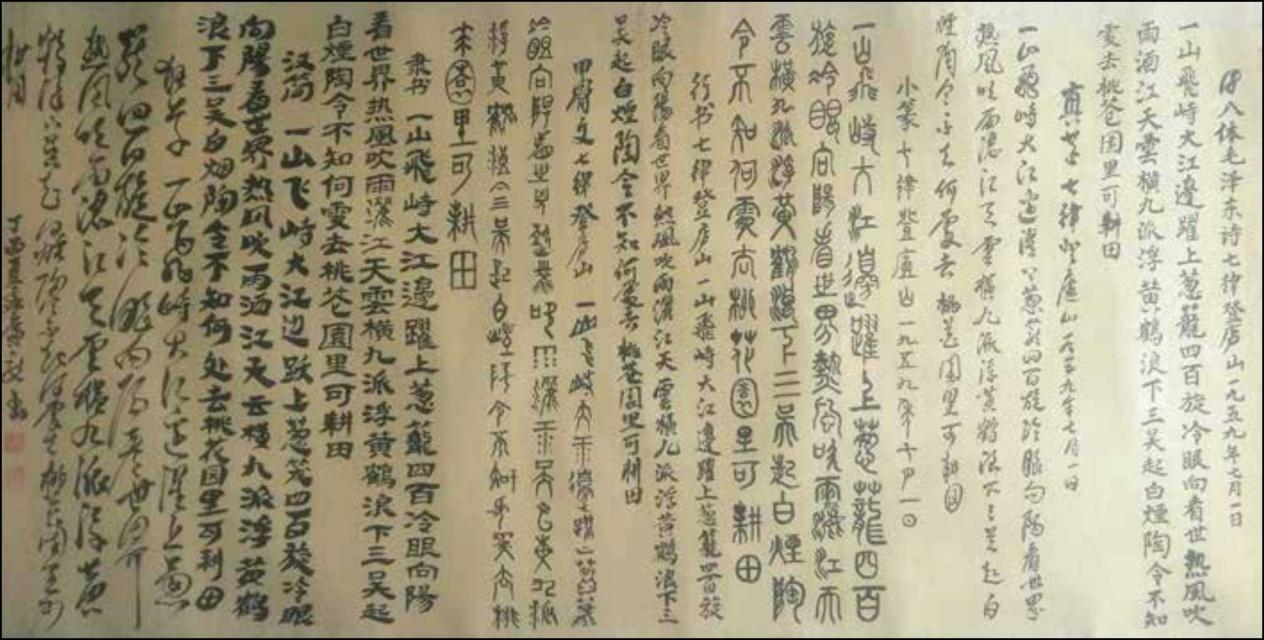 八体毛泽东诗七律登庐山一九五九年七月一日
一山飛峙大江邊躍上葱蘢四百旋冷眼向看世熱風吹
雨洒江天雲橫九派浮黄鶴浪下三吴起白煙陶令不知
處去桃花园里可耕田
真草七律登廬山一九五九年七月一日
一山飛峙大江邊躍上葱蘢四百旋冷眼向陽看世界
熱風吹雨洒江天雲橫九派浮黄鶴浪下三吴起白
煙陶令不知何處去桃花園里可耕田
小篆七律登廬山一九五九年七月一日
一山飛峙大江邊躍上葱蘢四百
旋冷眼向陽看世界熱風吹雨灑江天
雲橫九派浮黄鶴浪下三吴起白煙陶
令不知何處去桃花園里可耕田
行书七律登庐山一山飛峙大江邊躍上葱蘢四百旋
冷眼向陽看世界熱風吹雨灑江天雲橫九派浮黄鶴浪下三
吴起白煙陶令不知何處去桃花園里可耕田
甲骨文七律登庐山一山飛峙大江邊躍上葱蘢
冷眼向陽看世界熱風吹雨灑江天雲橫九派
浮黄鶴浪下三吴起白煙陶令不知何處去桃
花園里可耕田
隶书一山飛峙大江邊躍上葱蘢四百冷眼向陽
看世界热風吹雨灑江天雲橫九派浮黄鶴浪下三吴起
白煙陶令不知何處去桃花園里可耕田
汉简一山飞峙大江边跃上葱笼四百旋冷眼
向陽看世界热风吹雨洒江天云横九派浮黄鹤
浪下三吴白烟陶令不知何处去桃花园里可耕田
狂草一山飛峙大江邊躍上葱
蘢四百旋冷眼向陽看世界
熱風吹雨洒江天雲橫九派浮黄
鶴浪下三吴起白煙陶令不知何處去桃花園里可
耕田
丁酉夏